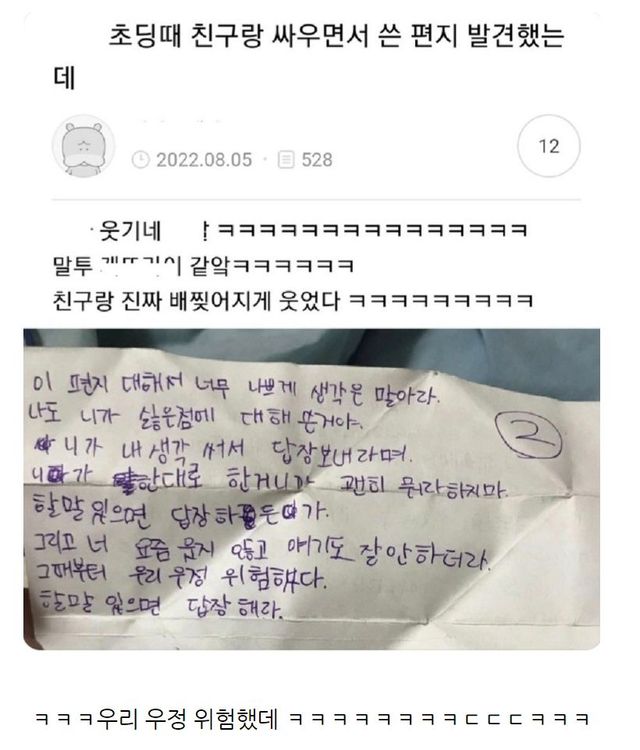 초딩때 친구랑 싸우면서 쓴 편지 발견했는
데
2022.08.05 · 528
12
웃기네 ㅋㅋㅋㅋㅋㅋㅋㅋㅋㅋㅋㅋㅋㅋㅋ
말투 같앜ㅋㅋㅋㅋㅋㅋ
친구랑 진짜 배찢어지게 웃었다 ㅋㅋㅋㅋㅋㅋㅋㅋㅋ
이 편지 대해서 너무 나쁘게 생각은 말아라.
나도 니가 싫은점에 대해 쓴거야.
니가 내 생각 써서 답장보내라며.
니가 한대로 한거니가 괜히 뭐라하지마.
할말 있으면 답장하든가.
그리고 너 요즘 웃지 않고 얘기도 잘 안하더라.
그때부터 우리 우정 위험했다.
할말 있으면 답장 해라.
2
ㅋㅋㅋ우리 우정 위험했데 ㅋㅋㅋㅋㅋㅋㅋㅋㄷㄷㄷㅋㅋㅋ